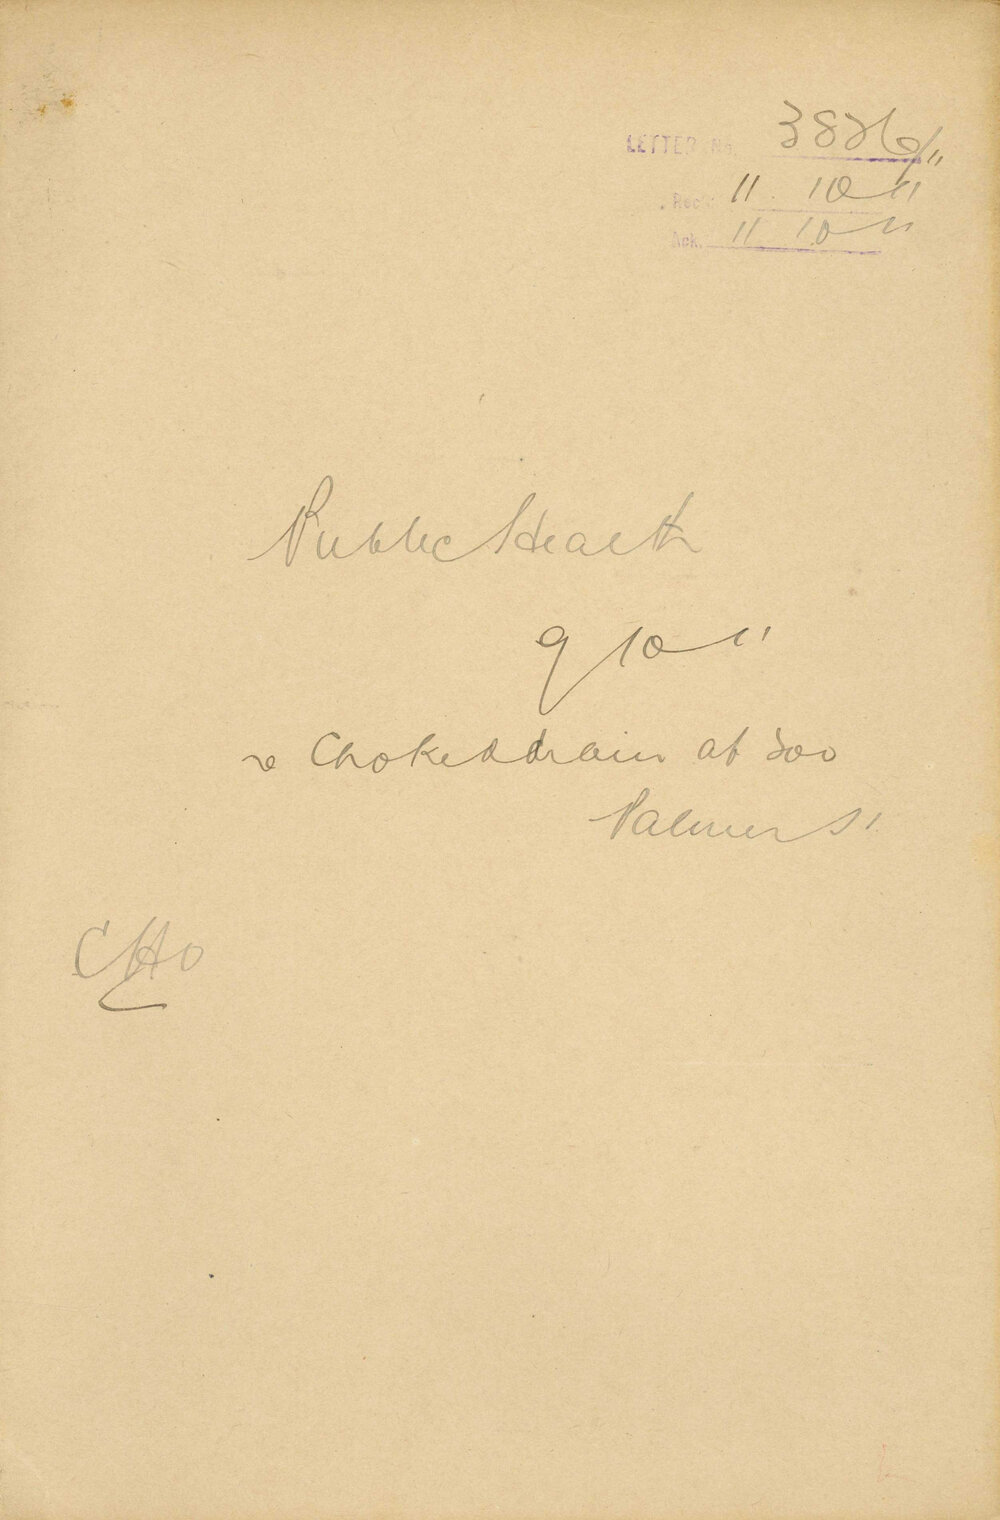 LETTER No. 3826/11
Recd. 11 10 11
Ack. 11 10 11
Public Health
9 10 11
re Choked drain at 300
Palmer St.
CHO